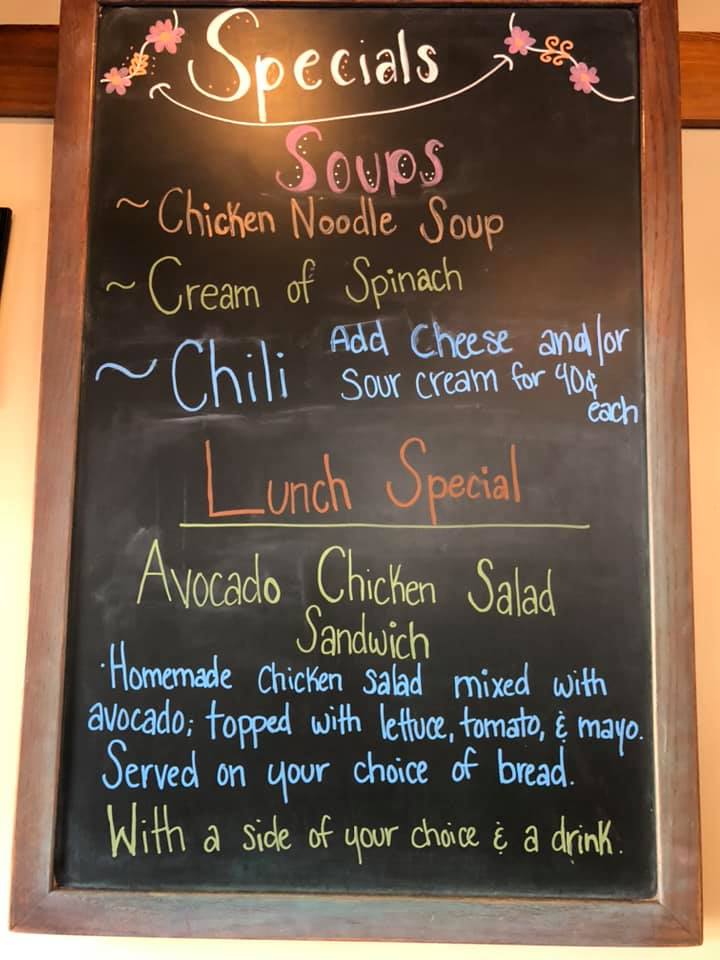 Specials
Soups
~ Chicken Noodle Soup
~ Cream of Spinach
~ Chili Add Cheese and/or
sour cream for 40¢
each
Lunch Special
Avocado Chicken Salad
Sandwich
·Homemade Chicken salad mixed with
avocado; topped with lettuce, tomato, & mayo.
Served on your choice of bread.
With a side of your choice & a drink.